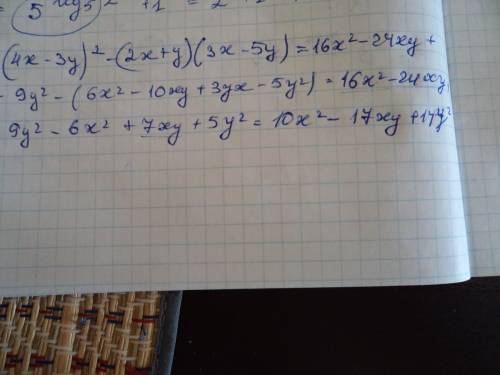 = 5^{log_5 2} + 1 = 2 +
(4x - 3y)² - (2x+y)(3x - 5y) = 16x² - 24xy +
- 9y² - (6x² - 10xy + 3yx - 5y²) = 16x² - 24xy
9y² - 6x² + 7xy + 5y² = 10x² - 17xy + 14y²